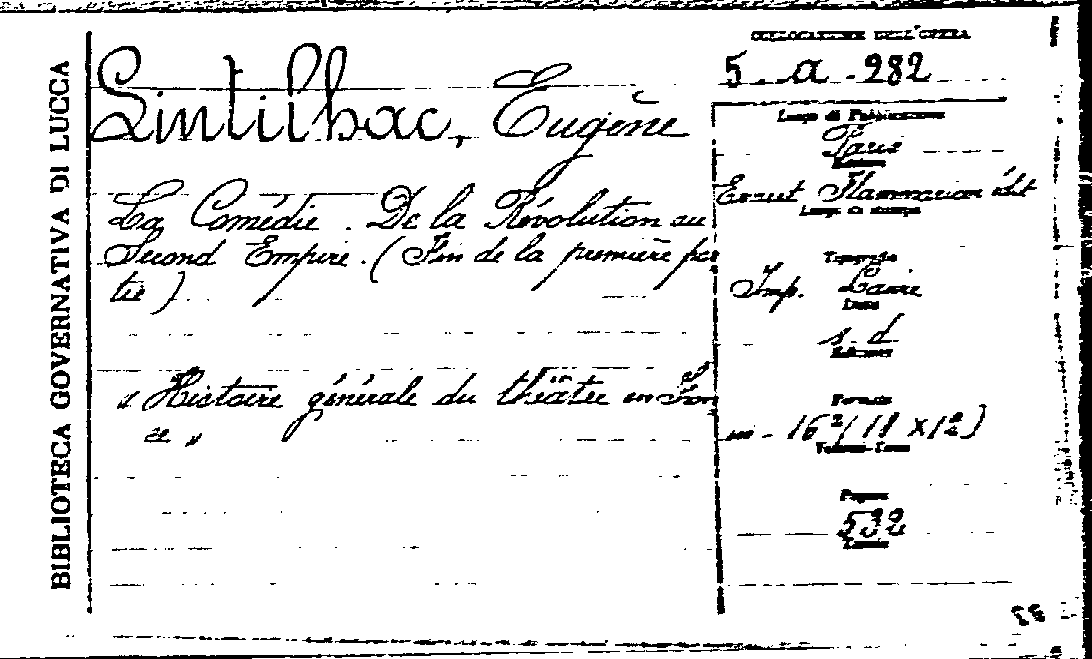 BIBLIOTECA GOVERNATIVA DI LUCCA
COLLOCAZIONE DELL'OPERA
5 - a - 282
Lintilhac, Eugène
La Comédie. De la Révolution au
Second Empire. (Fin de la première par
tie)
« Histoire générale du théâtre en Fran
ce »
Luogo di Pubblicazione
Paris
Editore
Ernest Flammarion édit
Luogo di stampa
Tipografia
Imp. Lavié
Data
s. d
Edizione
Formato
in - 16º (18 x 12)
Pagine
532